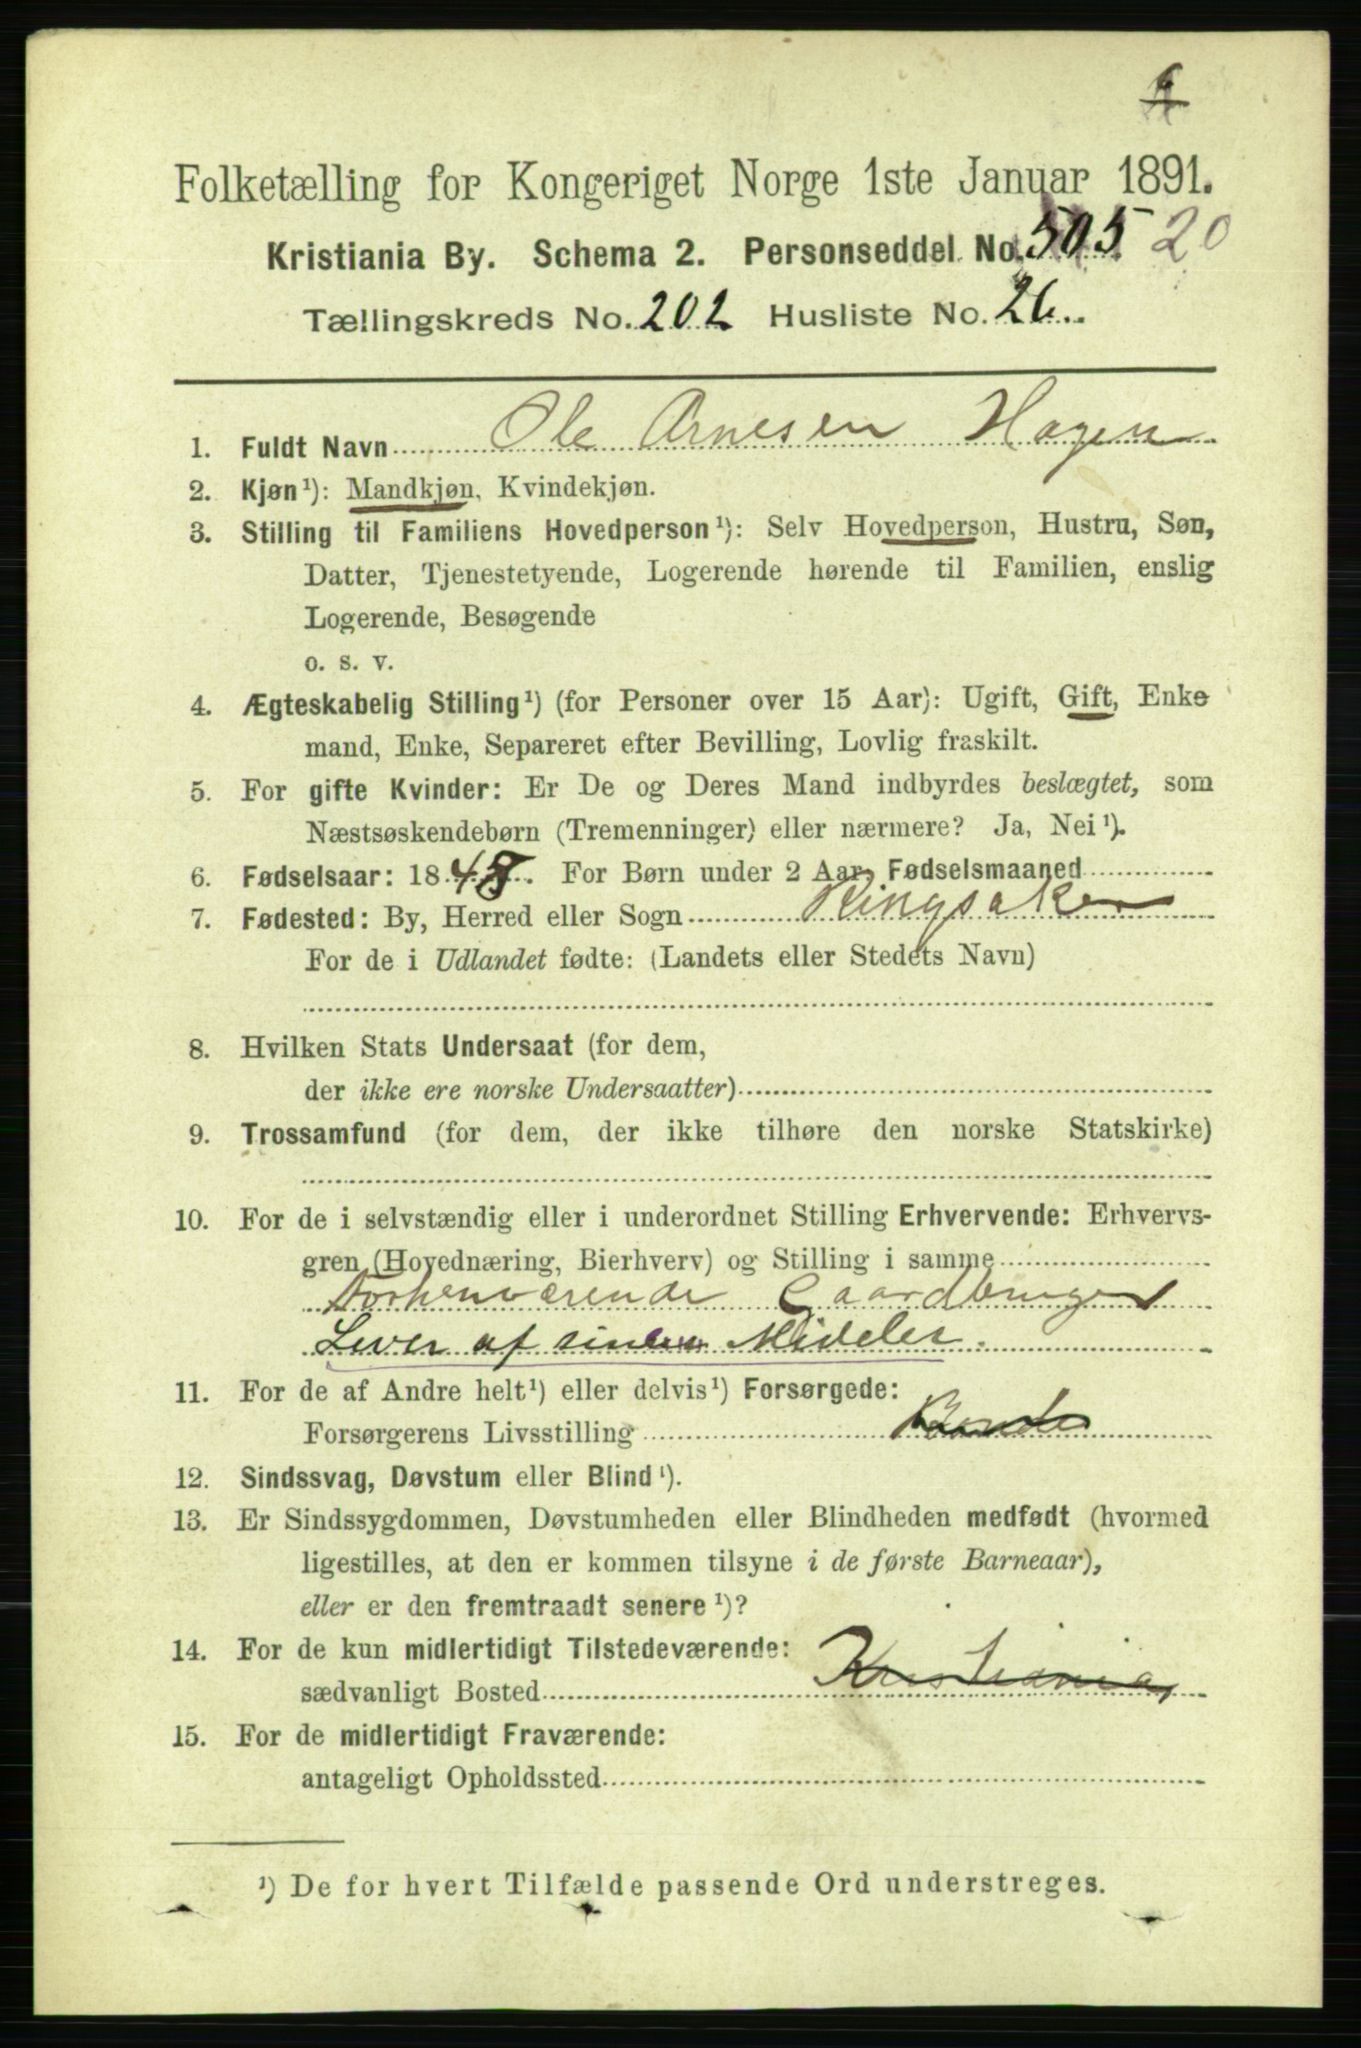 Folketælling for Kongeriget Norge 1ste Januar 1891.
Kristiania By. Schema 2. Personseddel No. 505 20
Tællingskreds No. 202 Husliste No. 26.
1. Fuldt Navn Ole Arnesen Hagen
2. Kjøn¹): Mandkjøn, Kvindekjøn.
3. Stilling til Familiens Hovedperson¹): Selv Hovedperson, Hustru, Søn,
Datter, Tjenestetyende, Logerende hørende til Familien, enslig
Logerende, Besøgende
o. s. v.
4. Ægteskabelig Stilling¹) (for Personer over 15 Aar): Ugift, Gift, Enke
mand, Enke, Separeret efter Bevilling, Lovlig fraskilt.
5. For gifte Kvinder: Er De og Deres Mand indbyrdes beslægtet, som
Næstsøskendebørn (Tremenninger) eller nærmere? Ja, Nei¹).
6. Fødselsaar: 1848. For Børn under 2 Aar, Fødselsmaaned
7. Fødested: By, Herred eller Sogn Ringsaker
For de i Udlandet fødte: (Landets eller Stedets Navn)
8. Hvilken Stats Undersaat (for dem,
der ikke ere norske Undersaatter)
9. Trossamfund (for dem, der ikke tilhøre den norske Statskirke)
10. For de i selvstændig eller i underordnet Stilling Erhvervende: Erhvervs-
gren (Hovednæring, Bierhverv) og Stilling i samme
Forhenværende Gaardbruger
Lever af sine Mideler.
11. For de af Andre helt¹) eller delvis¹) Forsørgede:
Forsørgerens Livsstilling Bonde
12. Sindssvag, Døvstum eller Blind¹).
13. Er Sindssygdommen, Døvstumheden eller Blindheden medfødt (hvormed
ligestilles, at den er kommen tilsyne i de første Barneaar),
eller er den fremtraadt senere¹)?
14. For de kun midlertidigt Tilstedeværende:
sædvanligt Bosted Kristiania
15. For de midlertidigt Fraværende:
antageligt Opholdssted
¹) De for hvert Tilfælde passende Ord understreges.